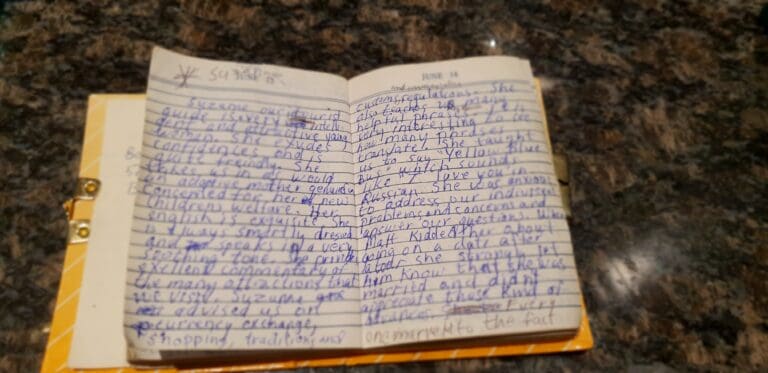 Suzanne
JUNE 13
Suzanne our tourist
guide is very intelli
gent and attractive young
women. She exudes
confidences and is
quite friendly. She
takes us in as would
an adoptive mother genuinely
consented for her new
childrens welfare. Her
english is exquisite She
is always smartly dressed
and speaks in a very
soothing tone. She provides
excellent commentary of
the many attractions that
we visit. Suzanne
advised us on
currency exchange,
shopping, traditions and
JUNE 14
customs regulations. She
also teaches us many
helpful phrases. It is
very interesting to see
how many phrases
translate. She taught
us to say "Yellow Blue
bus" which sounds
like "I love you" in
Russian. She was anxious
to address our individual
problems and concerns and
answer our questions. When
Matt Kidded her about
going on a date after
she strongly let
him know that she was
married and didn't
appreciate those kind of
advances. Every
one marvels to the fact